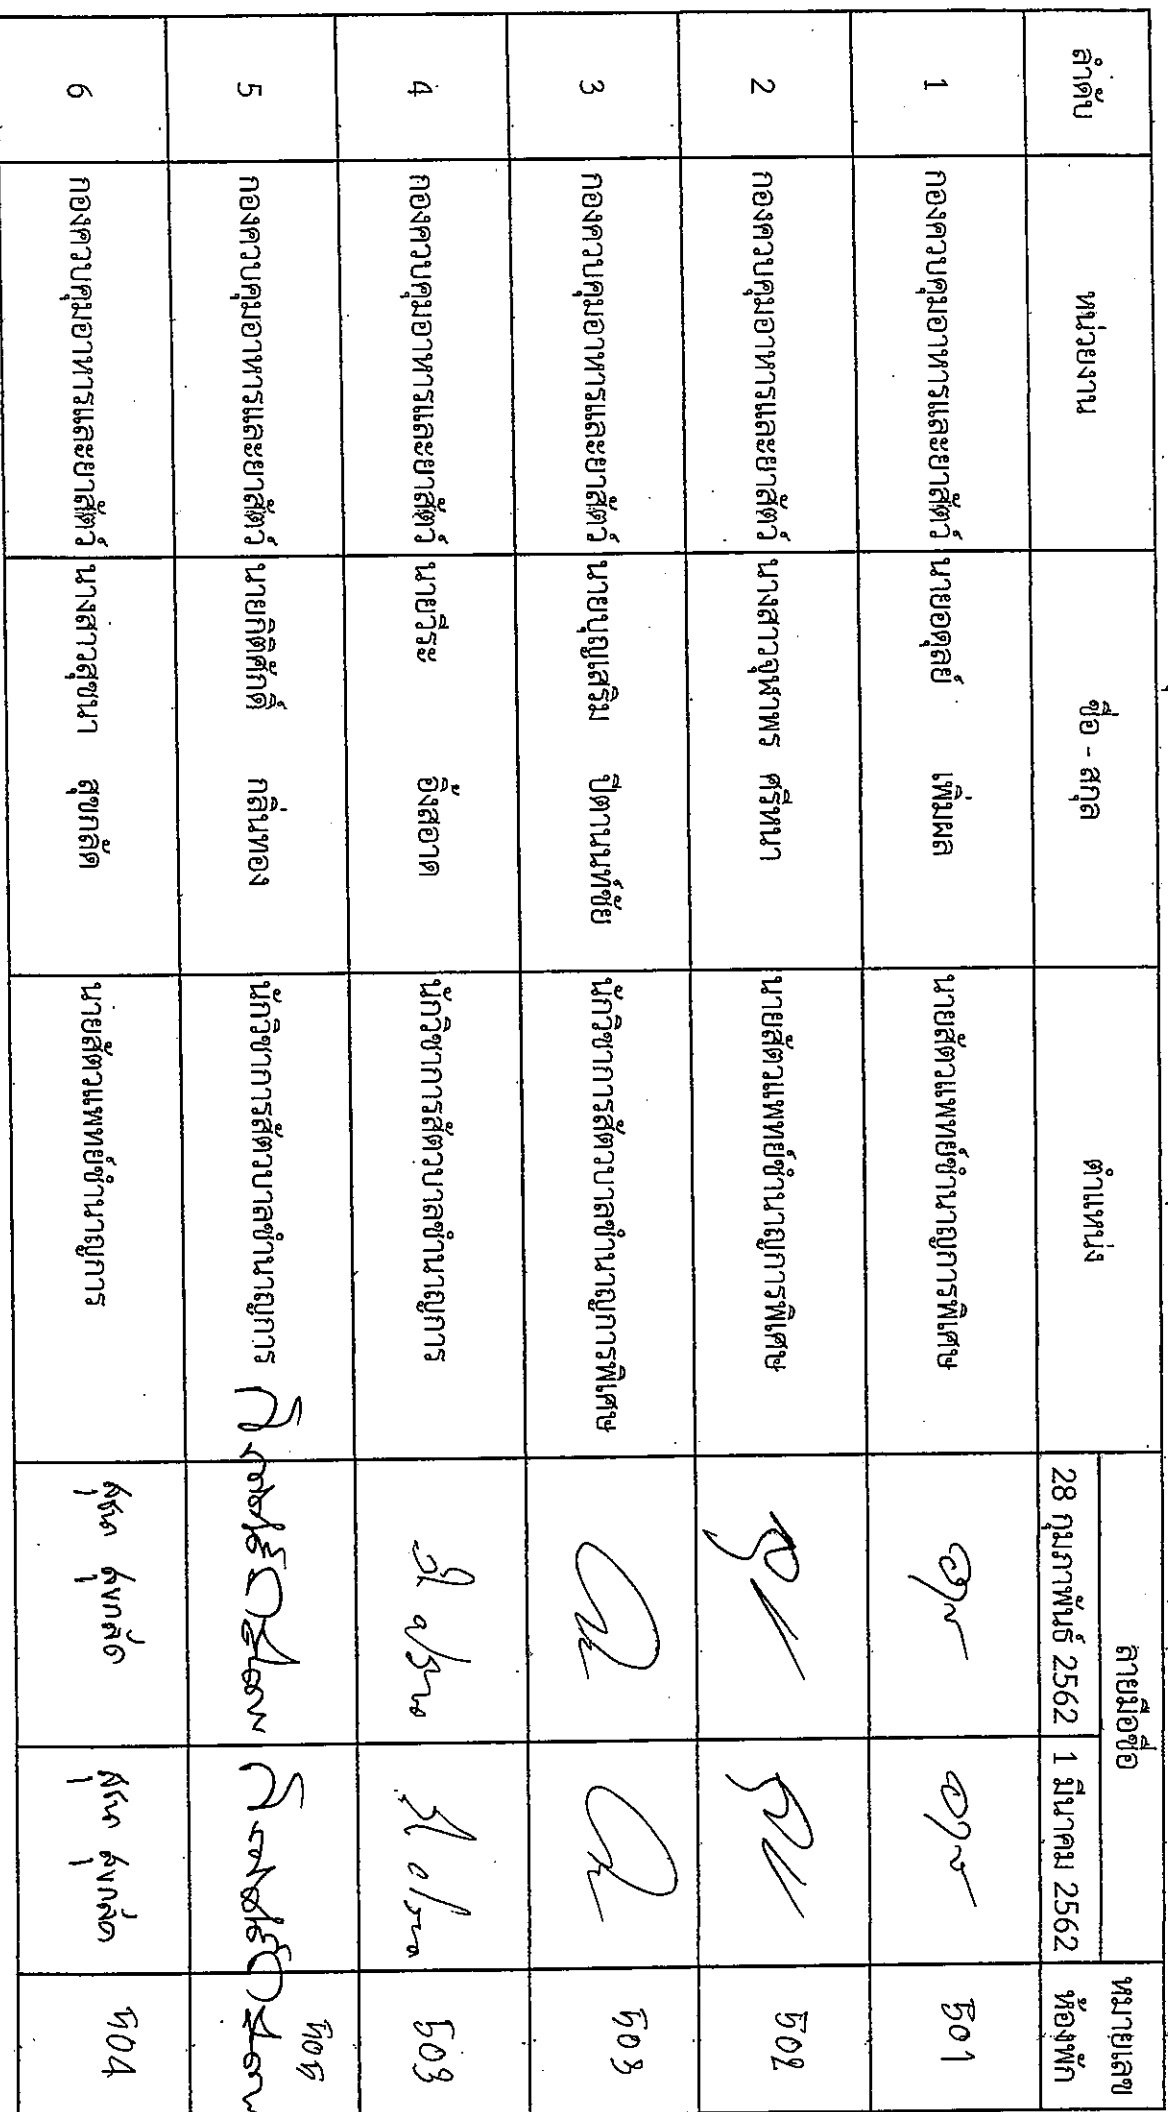 ลำดับ หน่วยงาน ชื่อ - สกุล ตำแหน่ง ลายมือชื่อ หมายเลข
28 กุมภาพันธ์ 2562 1 มีนาคม 2562 ห้องพัก
1 กองควบคุมอาหารและยาสัตว์ นายอดุลย์ เพิ่มผล นายสัตวแพทย์ชำนาญการพิเศษ 501
2 กองควบคุมอาหารและยาสัตว์ นางสาวจุฬาพร ศรีหนา นายสัตวแพทย์ชำนาญการพิเศษ 502
3 กองควบคุมอาหารและยาสัตว์ นายบุญเสริม ปิตานนท์ชัย นักวิชาการสัตวบาลชำนาญการพิเศษ 503
4 กองควบคุมอาหารและยาสัตว์ นายวีระ อิ้งสอาด นักวิชาการสัตวบาลชำนาญการ 503
5 กองควบคุมอาหารและยาสัตว์ นายกิติศักดิ์ กลิ่นทอง นักวิชาการสัตวบาลชำนาญการ 505
6 กองควบคุมอาหารและยาสัตว์ นางสาวสุขนา สุขกลัด นายสัตวแพทย์ชำนาญการ สุขนา สุขกลัด สุขนา สุขกลัด 504